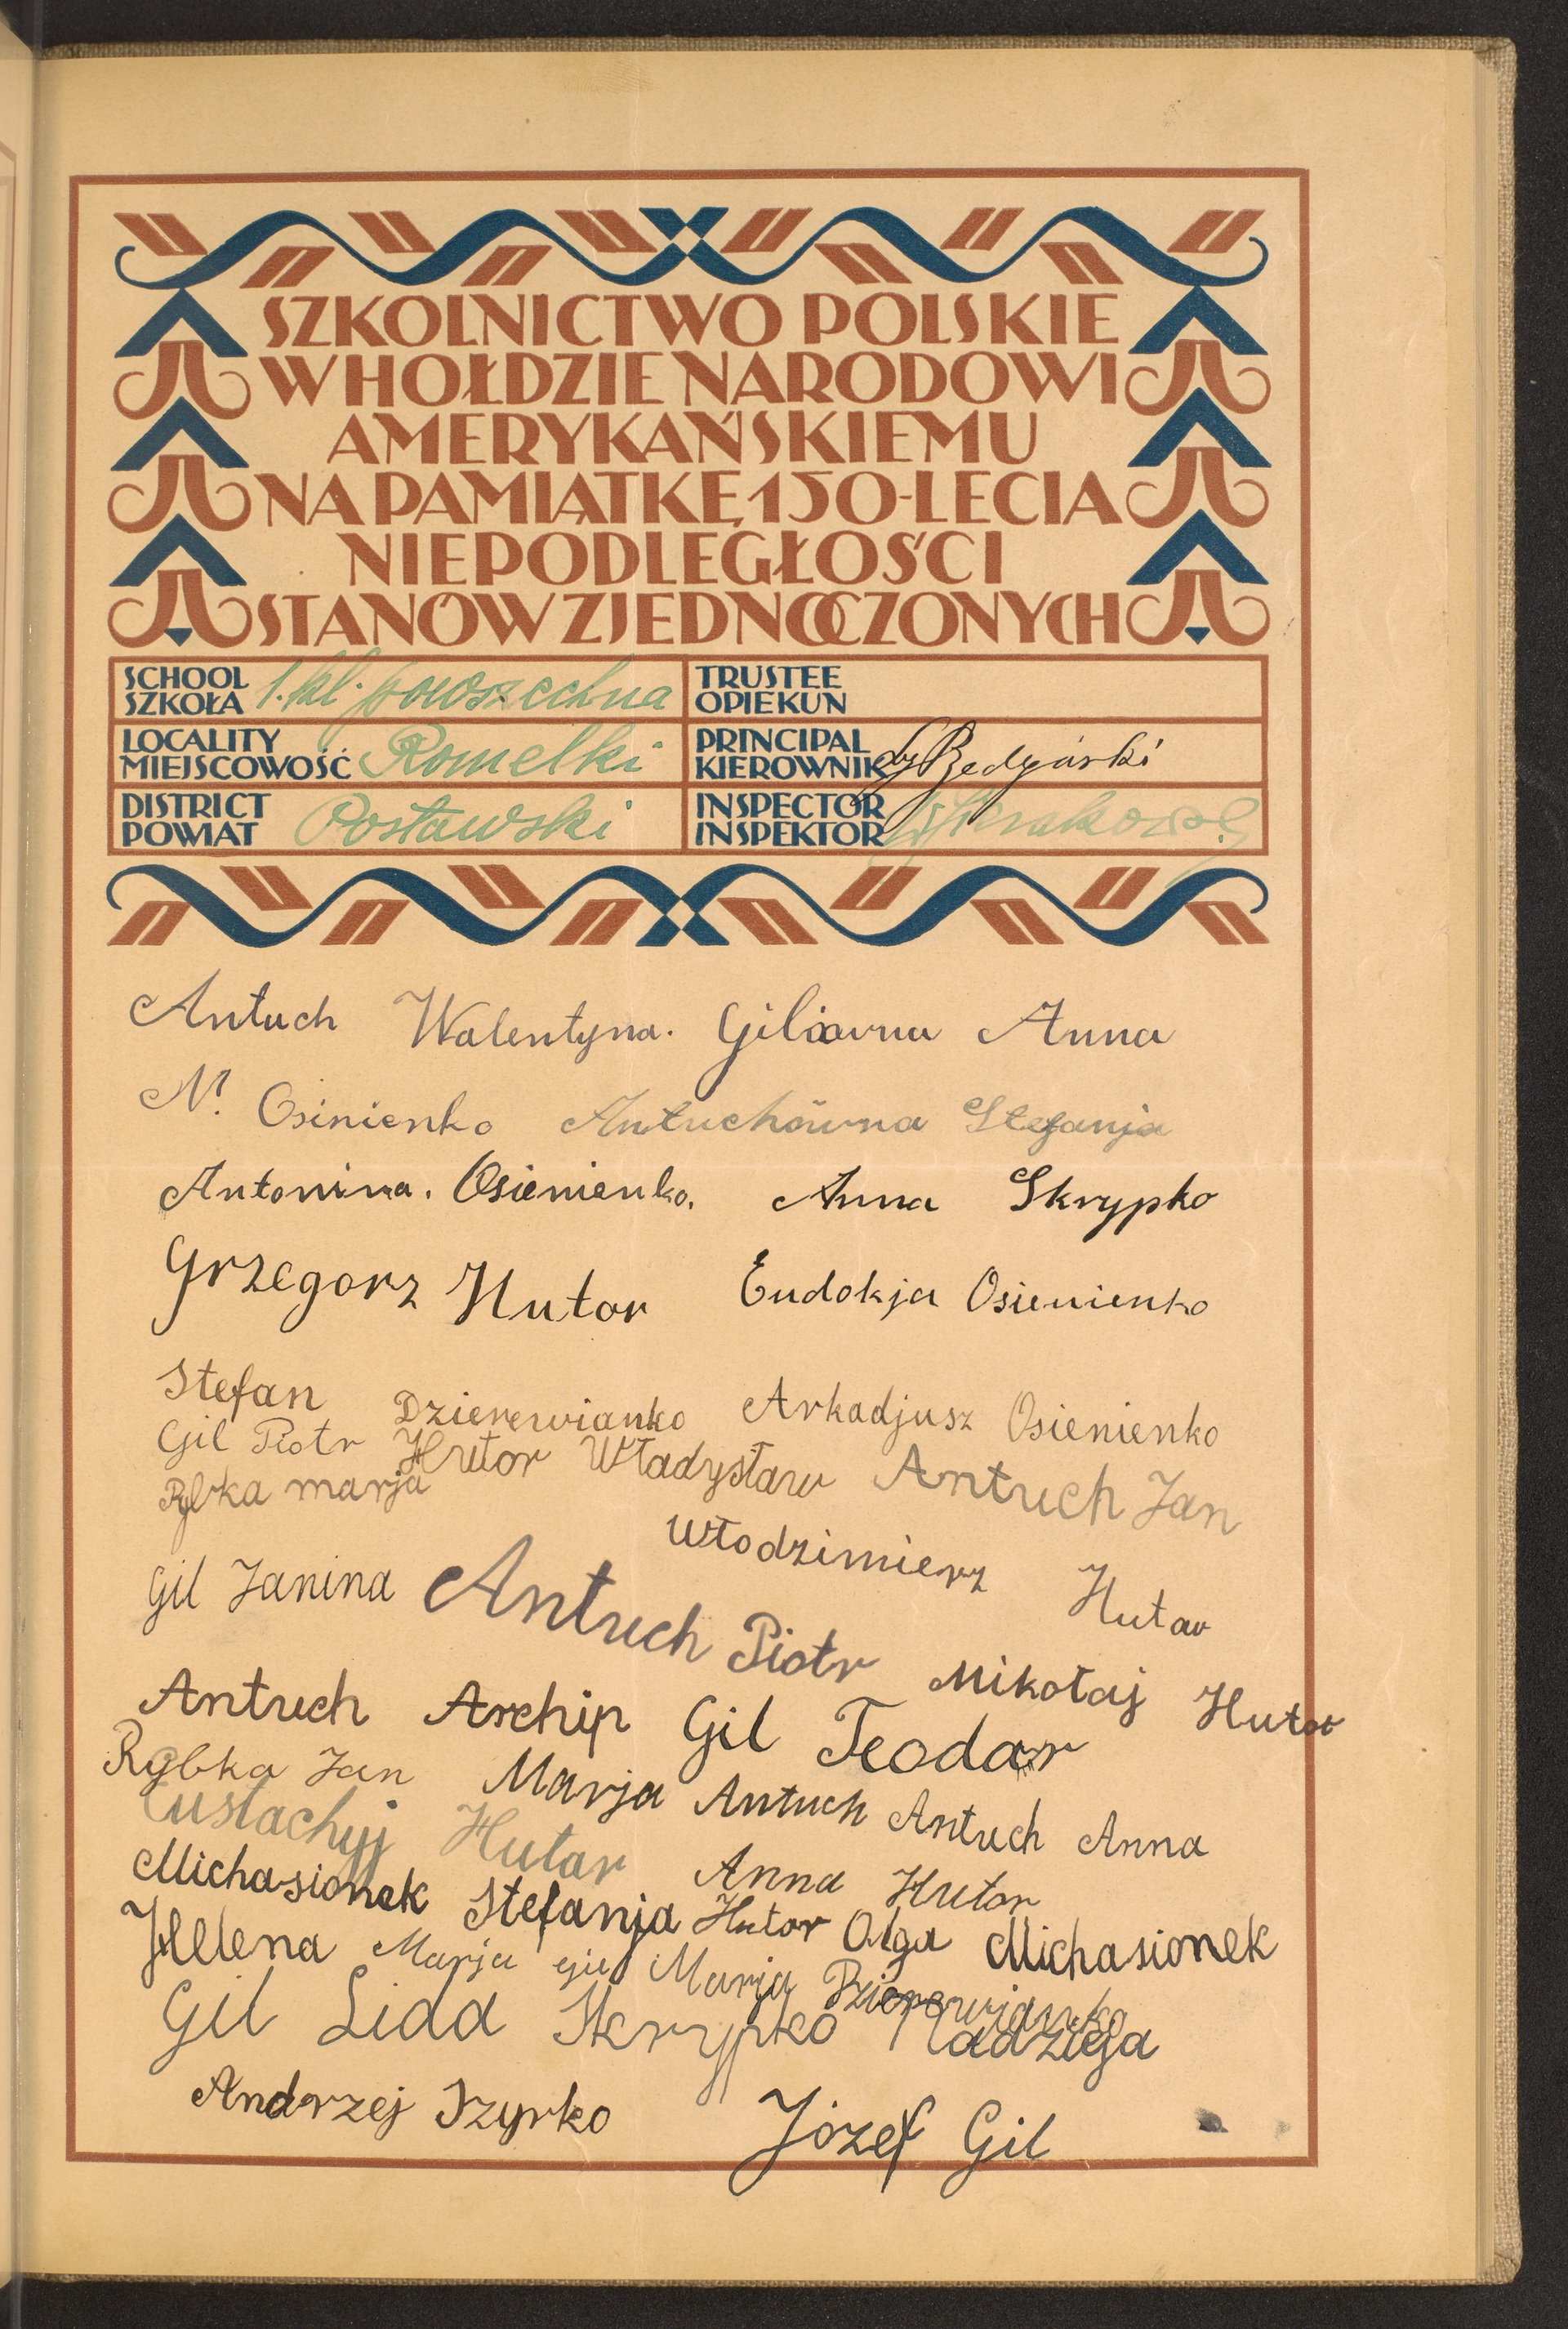 SZKOLNICTWO POLSKIE
W HOŁDZIE NARODOWI
AMERYKAŃSKIEMU
NA PAMIĄTKĘ 150-LECIA
NIEPODLEGŁOŚCI
STANÓW ZJEDNOCZONYCH
SCHOOL
SZKOŁA 1. kl. powszechna
TRUSTEE
OPIEKUN
LOCALITY
MIEJSCOWOŚĆ Romelki
PRINCIPAL
KIEROWNIK
DISTRICT
POWIAT Postawski
INSPECTOR
INSPEKTOR
Antuch Walentyna. Gilowna Anna
N. Osinienko Antuchówna Stefanja
Antonina. Osienienko. Anna Skrypko
Grzegorz Hutor Eudokja Osienienko
Stefan Dzierewianko Arkadjusz Osienienko
Gil Piotr Hutor Władysław Antuch Jan
Rybka marja
Włodzimierz Hutor
Gil Janina Antuch Piotr Mikołaj Hutor
Antuch Archip Gil Teodar
Rybka Jan Marja Antuch Antuch Anna
Eustachyj Hutar Anna Hutor
Michasionek Stefanja Hutor Olga Michasionek
Helena Marja Marja Dzierewianko
Gil Lida Skrypko Nadzieja
Andrzej Szyrko Józef Gil